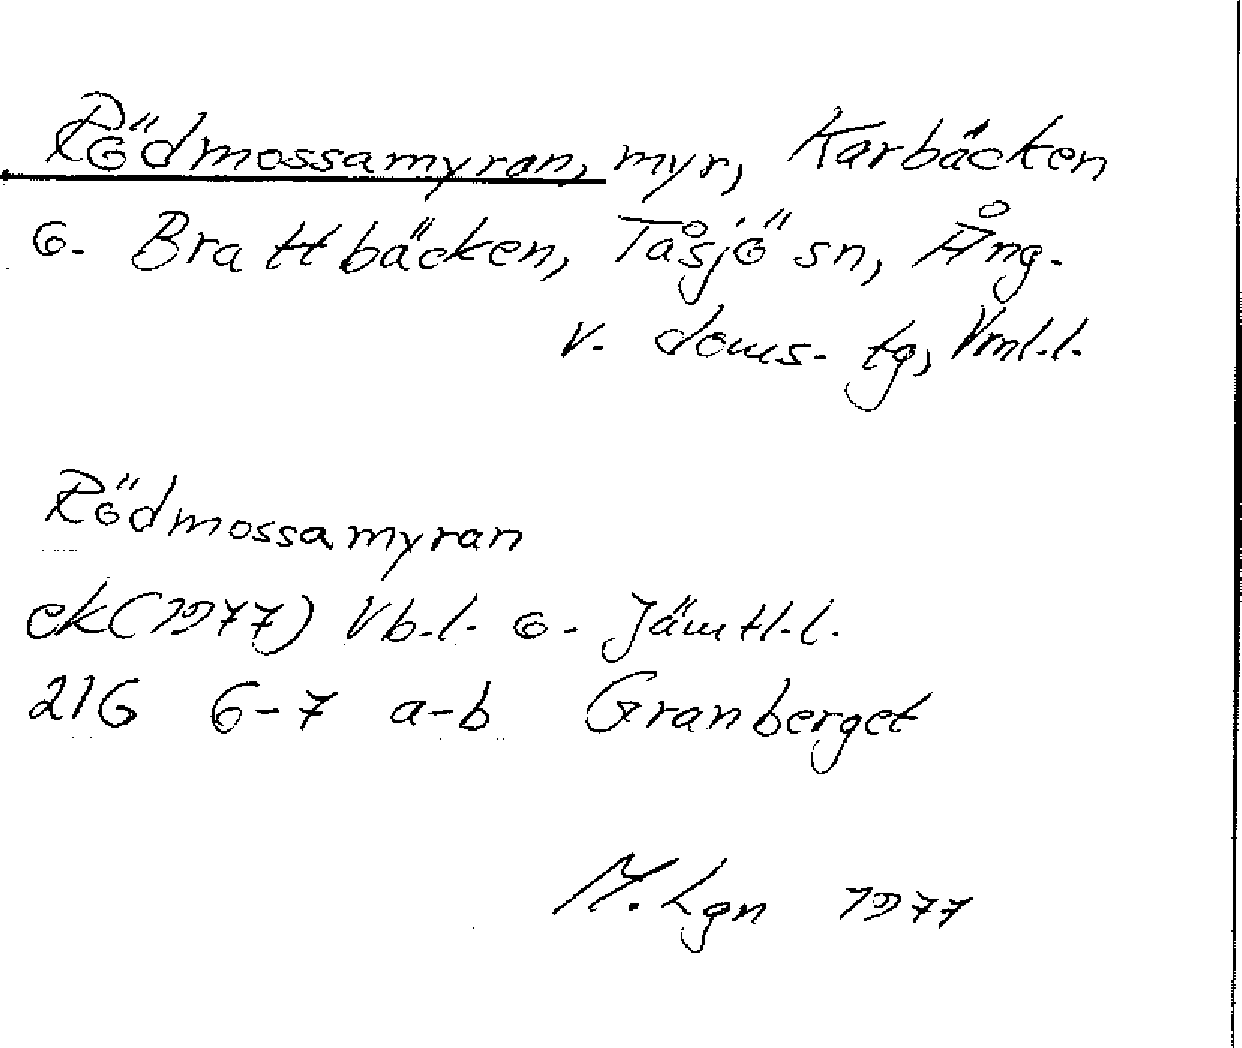 Rödmossamyran, myr, Karbäcken
o. Brattbäcken, Tåsjö sn, Ång.
V. doms. tg, Vml.l.
Rödmossamyran
ek (1977) Vb.l. o. Jämtl.l.
21G 6-7 a-b Granberget
M. Lgn 1977